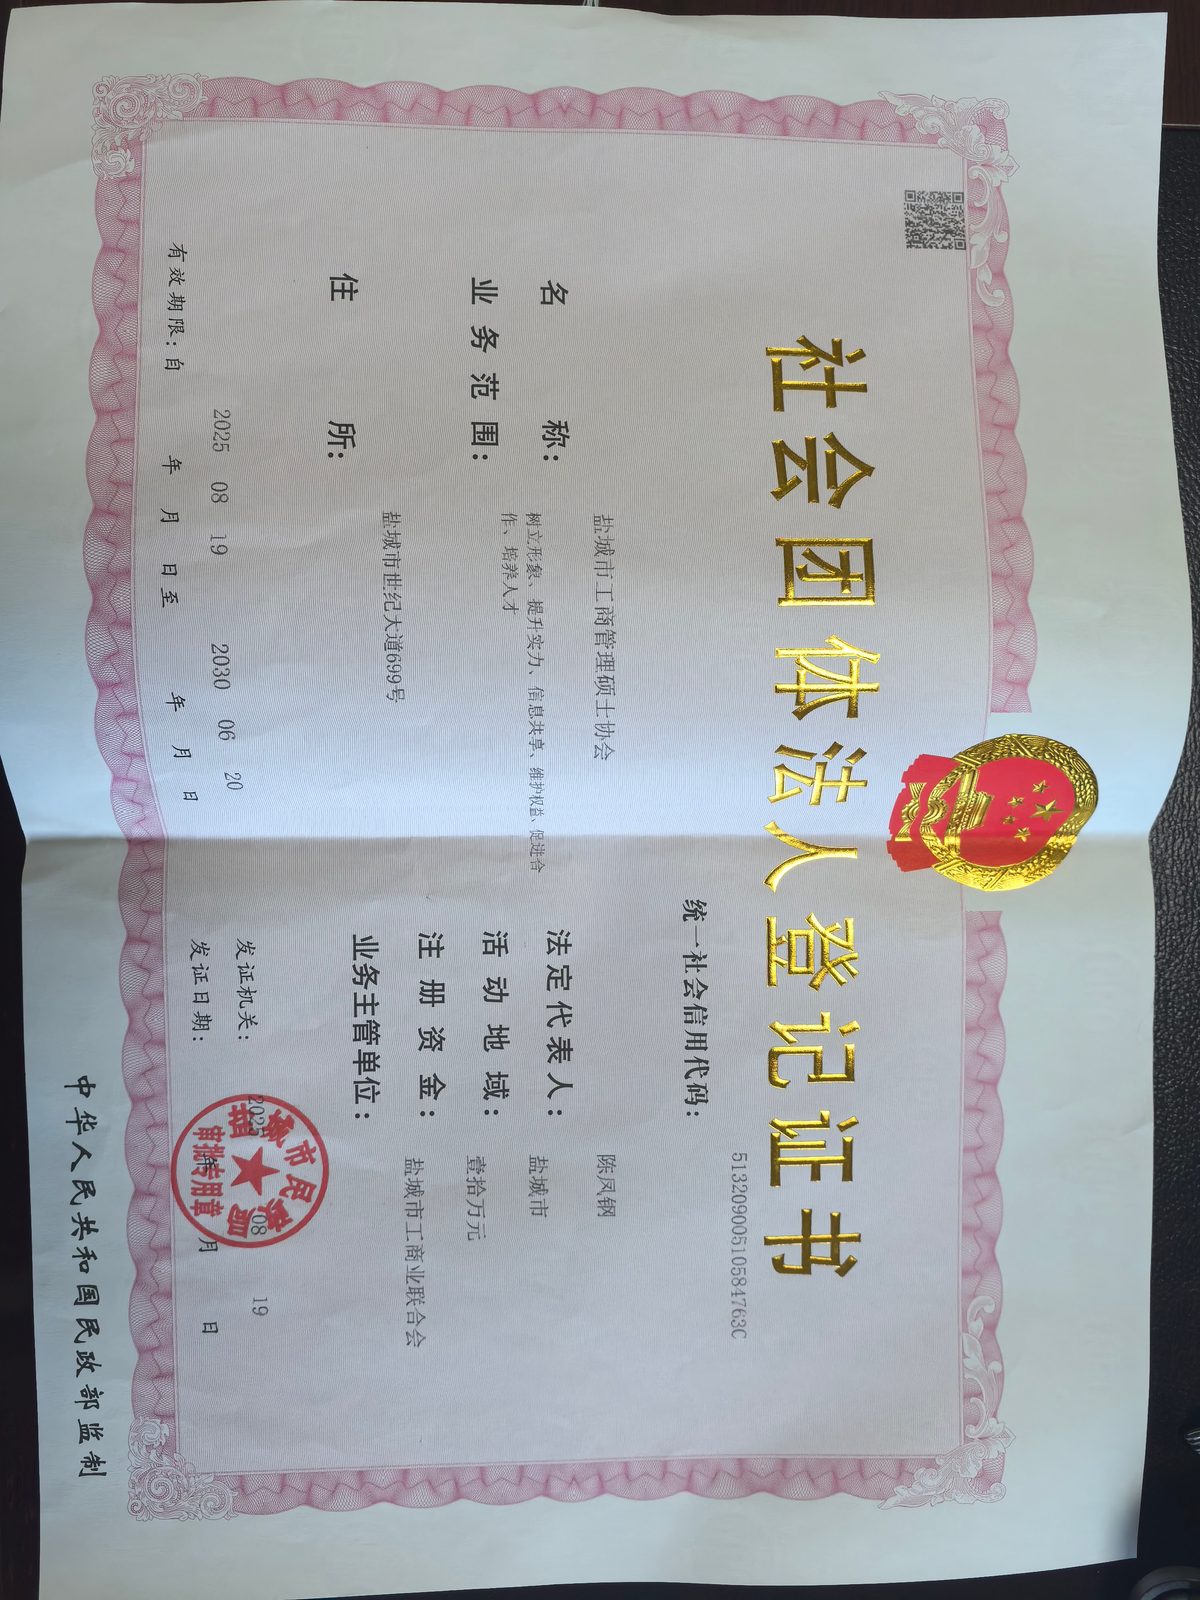 社会团体法人登记证书
统一社会信用代码：
51320900510584763C
名称：
盐城市工商管理硕士协会
业务范围：
树立形象、提升实力、信息共享、维护权益、促进合
作、培养人才
住所：
盐城市世纪大道699号
法定代表人：
陈凤钢
活动地域：
盐城市
注册资金：
壹拾万元
业务主管单位：
盐城市工商业联合会
有效期限：自 2025 年 08 月 19 日至 2030 年 06 月 20 日
发证机关：
盐城市民政局
审批专用章
发证日期： 2025 年 08 月 19 日
中华人民共和国民政部监制